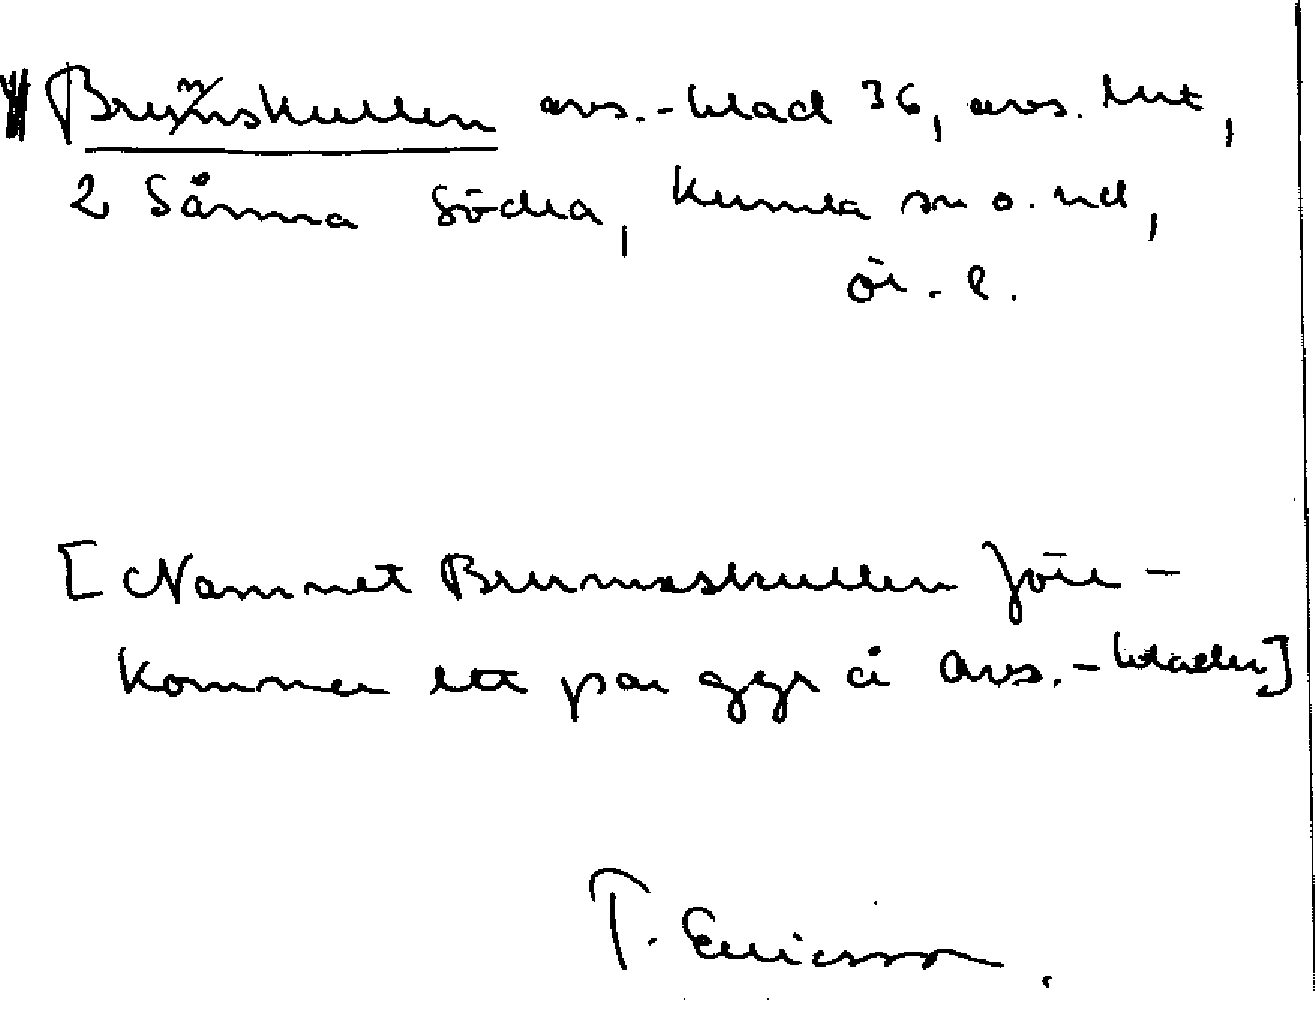 Brunnskullen avs.-blad 36, avs. hut,
2 Sånna Södra, Kumla sn o. hd,
Ör. l.
[Namnet Brunnskullen före-
kommer ett par ggr å avs.-bladen]
T. Ericsson.